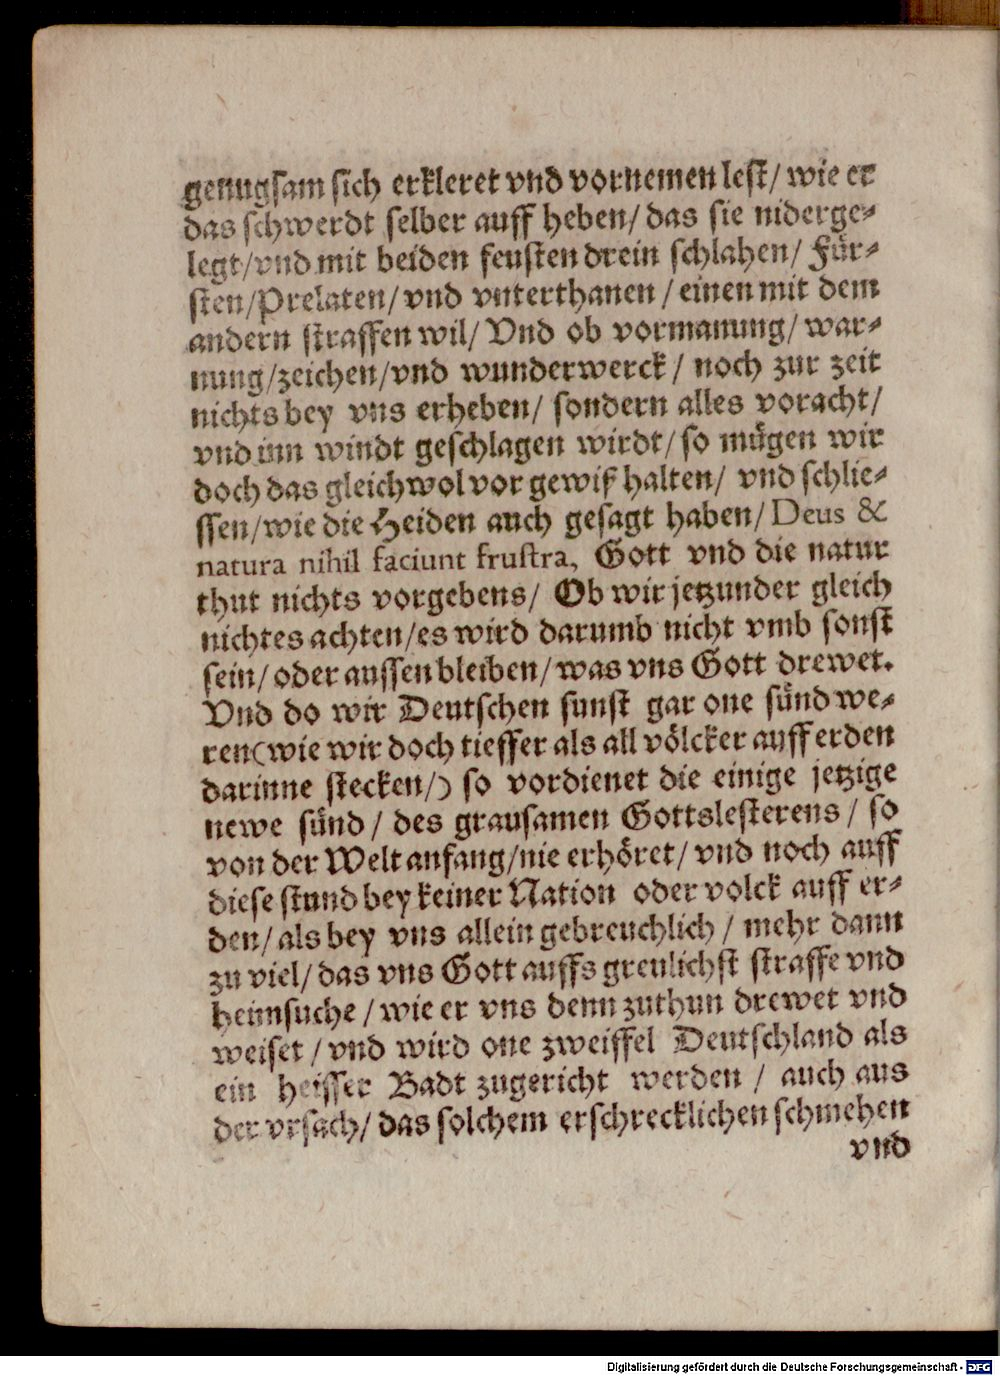 genugsam sich erkleret vnd vornemen lest/ wie er
das schwerdt selber auff heben/ das sie niderge⸗
legt/vnd mit beiden feusten drein schlahen/ Für⸗
sten/Prelaten/ vnd vnterthanen / einen mit dem
andern straffen wil/ Vnd ob vormanung/ war⸗
nung/zeichen/vnd wunderwerck / noch zur zeit
nichts bey vns erheben/ sondern alles voracht/
vnd inn windt geschlagen wirdt/ so mügen wir
doch das gleichwol vor gewiß halten/ vnd schlie⸗
ssen/wie die Heiden auch gesagt haben/ Deus &
natura nihil faciunt frustra, Gott vnd die natur
thut nichts vorgebens/ Ob wir jetzunder gleich
nichtes achten/es wird darumb nicht vmb sonst
sein/ oder aussen bleiben/ was vns Gott drewet.
Vnd do wir Deutschen sunst gar one sünd we⸗
ren(wie wir doch tieffer als all völcker auff erden
darinne stecken/) so vordienet die einige jetzige
newe sünd / des grausamen Gottslesterens / so
von der Welt anfang/nie erhöret/ vnd noch auff
diese stund bey keiner Nation oder volck auff er⸗
den/ als bey vns allein gebreuchlich / mehr dann
zu viel/ das vns Gott auffs greulichst straffe vnd
heimsuche / wie er vns denn zuthun drewet vnd
weiset / vnd wird one zweiffel Deutschland als
ein heisser Badt zugericht werden / auch aus
der vrsach/ das solchem erschrecklichen schmehen
vnd
Digitalisierung gefördert durch die Deutsche Forschungsgemeinschaft - DFG